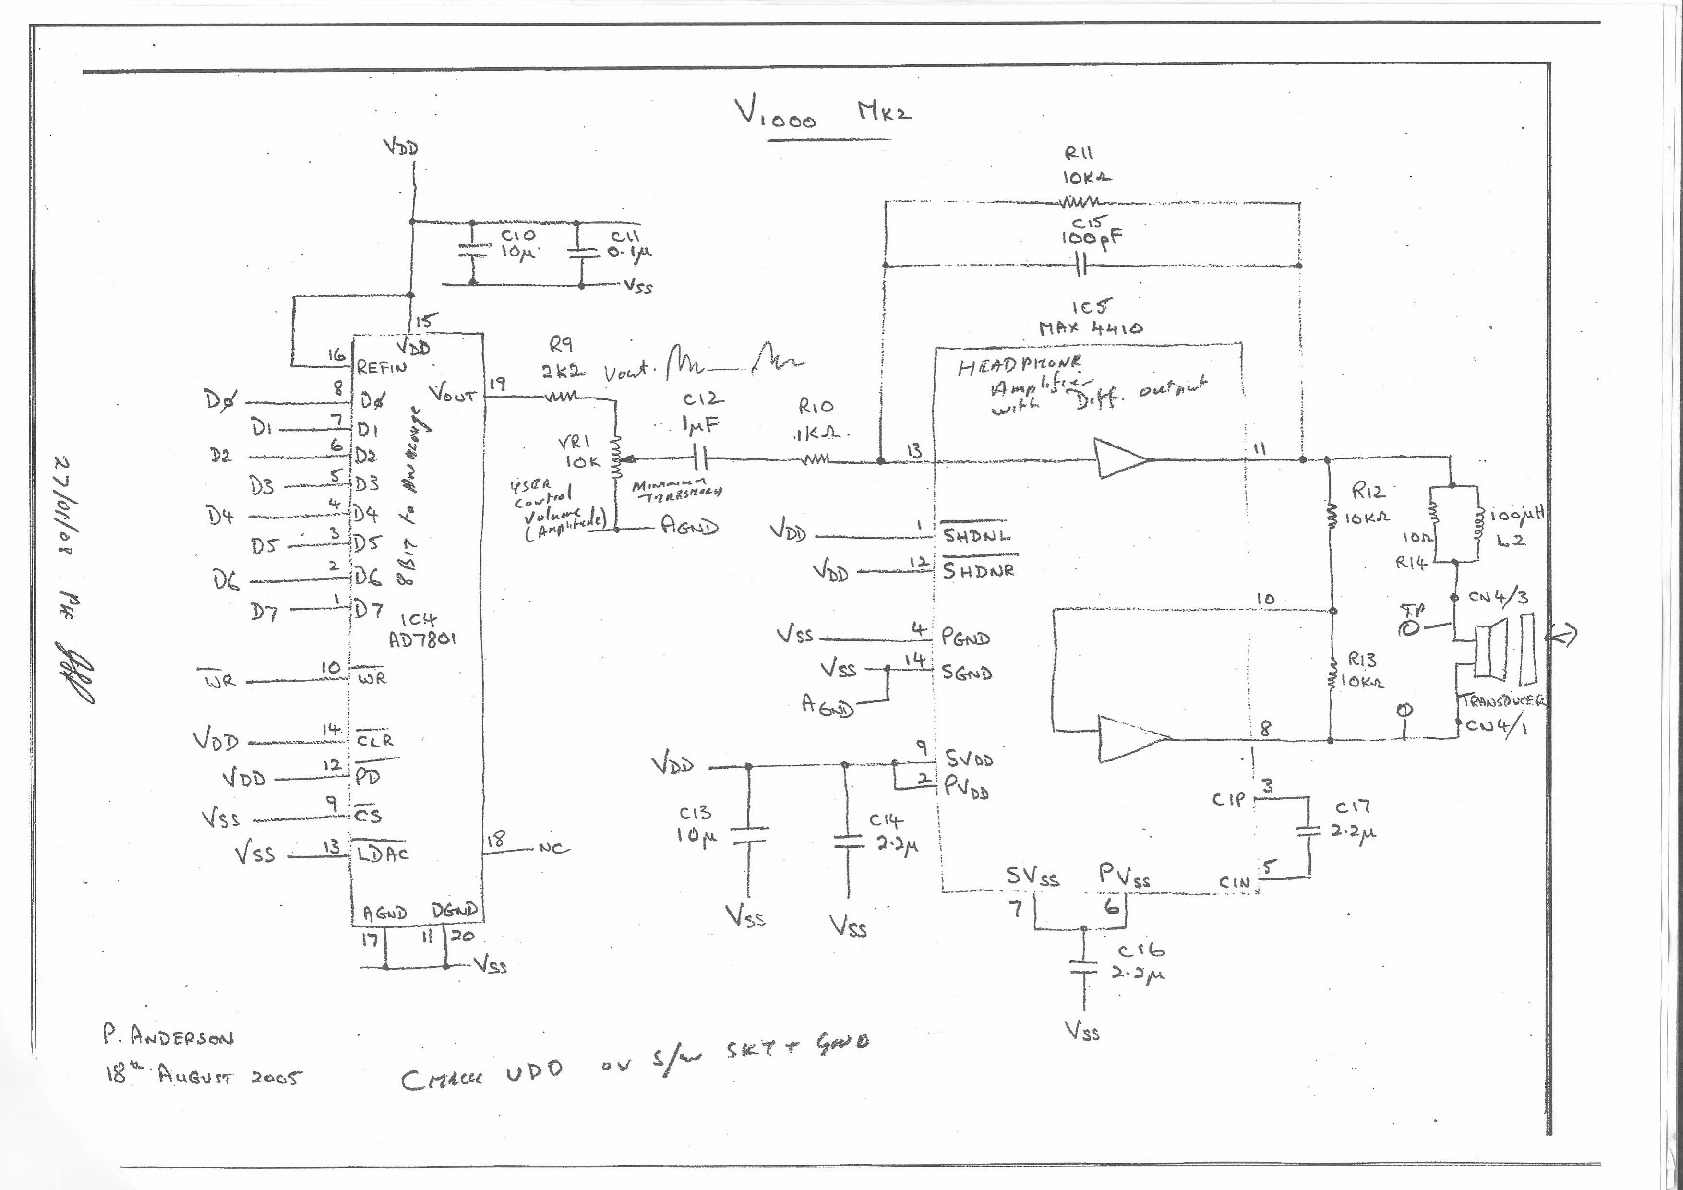 V1000 MK2
VDD
C10
10µ
C11
0.1µ
VSS
R11
10KΩ
C15
100pF
IC5
MAX 4410
HEADPHONE
Amplifier
with Diff. output
15
VDD
16
REFIN
VOUT
19
R9
2K2
Vout.
C12
1µF
R10
1KΩ
VR1
10K
USER
Control
Volume
(Amplitude)
AGND
DØ 8 DØ
D1 7 D1
D2 6 D2
D3 5 D3
D4 4 D4
D5 3 D5
D6 2 D6
D7 1 D7
8 Bit to
IC4
AD7801
WR 10 WR
VDD 14 CLR
VDD 12 PD
VSS 9 CS
VSS 13 LDAC
18 NC
AGND DGND
17 11 20
VSS
13
11
VDD 1 SHDNL
VDD 12 SHDNR
VSS 4 PGND
VSS 14 SGND
AGND
VDD 9 SVDD
2 PVDD
C13
10µ
VSS
C14
2.2µ
VSS
10
8
3
C1P
C17
2.2µ
5
C1N
SVSS PVSS
7 6
C16
2.2µ
VSS
R12
10KΩ
R13
10KΩ
100µH
L2
10Ω
R14
CN4/3
TP
TRANSDUCER
CN4/1
27/01/08
P. ANDERSON
18th August 2005
VDD 0V S/W SKT + GND